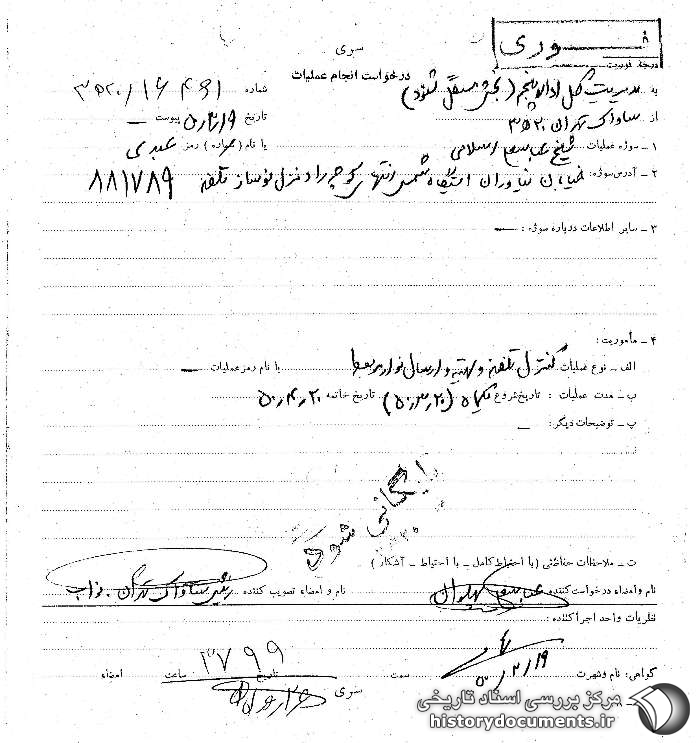 فــوری
درجه فوریت
سری
درخواست انجام عملیات
شماره ۳۵۲۰/۱۶۴۶۱
به مدیریت کل اداره پنجم (بخش مستقل شنود)
تاریخ ۵۰/۳/۱۹ پیوست ــ
از ساواک تهران ۳۵۲۰
۱ ـ سوژه عملیات شیخ عباسعلی اسلامی
با نام (همواره) رمز عبدی
۲ ـ آدرس سوژه: خیابان نیاوران ایستگاه شمس انتهای کوچه راد منزل نوساز تلفن ۸۸۱۷۸۹
۳ ـ سایر اطلاعات درباره سوژه: ــ
۴ ـ مأموریت:
الف ـ نوع عملیات کنترل تلفن و تهیه و ارسال نوار مربوطه با نام رمز عملیات ــ
ب ـ مدت عملیات : تاریخ شروع یکماه (۵۰/۳/۲۰) تاریخ خاتمه ۵۰/۴/۲۰
پ ـ توضیحات دیگر: ــ
بایگانی شود
ت ـ ملاحظات حفاظتی (با احتیاط کامل ـ با احتیاط ـ آشکار)
نام و امضاء درخواست کننده
نام و امضاء تصویب کننده رئیس ساواک تهران . نواب
نظریات واحد اجرا کننده :
۳۷۹۹
گواهی: نام و شهرت
سمت
تاریخ
ساعت
امضاء
سری
مرکز بررسی اسناد تاریخی
historydocuments.ir